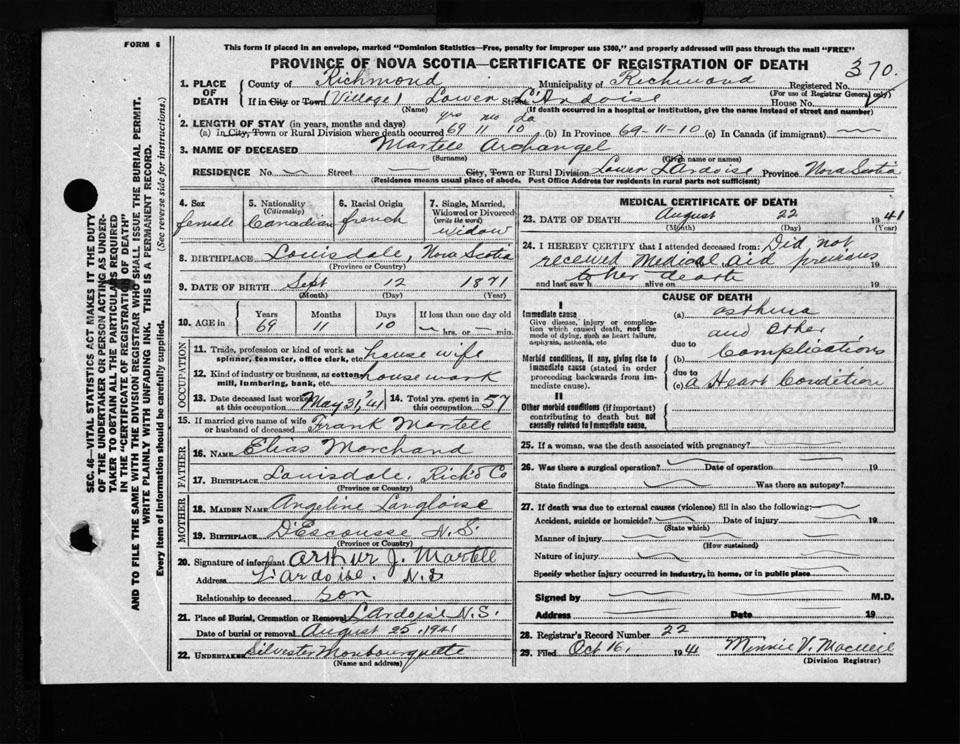 FORM 6
This form if placed in an envelope, marked "Dominion Statistics—Free, penalty for improper use $300," and properly addressed will pass through the mail "FREE"
PROVINCE OF NOVA SCOTIA—CERTIFICATE OF REGISTRATION OF DEATH
370.
1. PLACE OF DEATH
County of Richmond Municipality of Richmond Registered No.
(For use of Registrar General only)
If in City or Town (Village) Lower L'Ardoise Street House No.
(Name) (If death occurred in a hospital or institution, give the name instead of street and number)
2. LENGTH OF STAY (in years, months and days) yrs mo da
(a) In City, Town or Rural Division where death occurred 69 11 10 (b) In Province 69-11-10 (c) In Canada (if immigrant)
3. NAME OF DECEASED Martell Archangel
(Surname) (Given name or names)
RESIDENCE No. Street City, Town or Rural Division Lower L'Ardoise Province Nova Scotia
(Residence means usual place of abode. Post Office Address for residents in rural parts not sufficient)
4. Sex female
5. Nationality (Citizenship) Canadian
6. Racial Origin french
7. Single, Married, Widowed or Divorced (write the word) widow
8. BIRTHPLACE Louisdale, Nova Scotia
(Province or Country)
9. DATE OF BIRTH Sept 12 1871
(Month) (Day) (Year)
10. AGE in Years Months Days If less than one day
69 11 10 hrs. or min.
OCCUPATION
11. Trade, profession or kind of work as spinner, teamster, office clerk, etc. house wife
12. Kind of industry or business, as cotton mill, lumbering, bank, etc. house work
13. Date deceased last worked at this occupation May 31, '41 14. Total yrs. spent in this occupation 57
15. If married give name of wife or husband of deceased Frank Martell
FATHER
16. NAME Elias Marchand
17. BIRTHPLACE Louisdale, Rich'd Co
(Province or Country)
MOTHER
18. MAIDEN NAME Angeline Langloise
19. BIRTHPLACE D'Escousse N.S.
(Province or Country)
20. Signature of informant Arthur J. Martell
Address L'Ardoise. N.S
Relationship to deceased son
21. Place of Burial, Cremation or Removal L'Ardoise N.S.
Date of burial or removal August 25, 1941
22. UNDERTAKER Silvester Monbourquette
(Name and address)
MEDICAL CERTIFICATE OF DEATH
23. DATE OF DEATH August 22 1941
(Month) (Day) (Year)
24. I HEREBY CERTIFY that I attended deceased from: Did not
received Medical aid previous 19
and last saw h to her death alive on 19
CAUSE OF DEATH
I
Immediate cause
Give disease, injury or complication which caused death, not the mode of dying, such as heart failure, asphyxia, asthenia, etc
(a) asthma
and other
due to
Morbid conditions, if any, giving rise to immediate cause (stated in order proceeding backwards from immediate cause).
(b) Complications
due to
(c) a Heart Condition
II
Other morbid conditions (if important) contributing to death but not causally related to immediate cause.
25. If a woman, was the death associated with pregnancy?
26. Was there a surgical operation? Date of operation 19
State findings Was there an autopsy?
27. If death was due to external causes (violence) fill in also the following:
Accident, suicide or homicide? Date of injury 19
(State which)
Manner of injury
(How sustained)
Nature of injury
Specify whether injury occurred in industry, in home, or in public place
Signed by M.D.
Address Date 19
28. Registrar's Record Number 22
29. Filed Oct 16, 1941 Minnie V. MacNeil
(Division Registrar)
SEC. 46—VITAL STATISTICS ACT MAKES IT THE DUTY
OF THE UNDERTAKER OR PERSON ACTING AS UNDERTAKER
TO OBTAIN ALL THE PARTICULARS REQUIRED
IN THE "CERTIFICATE OF REGISTRATION OF DEATH"
AND TO FILE THE SAME WITH THE DIVISION REGISTRAR WHO SHALL ISSUE THE BURIAL PERMIT.
WRITE PLAINLY WITH UNFADING INK. THIS IS A PERMANENT RECORD.
Every item of information should be carefully supplied. (See reverse side for instructions.)